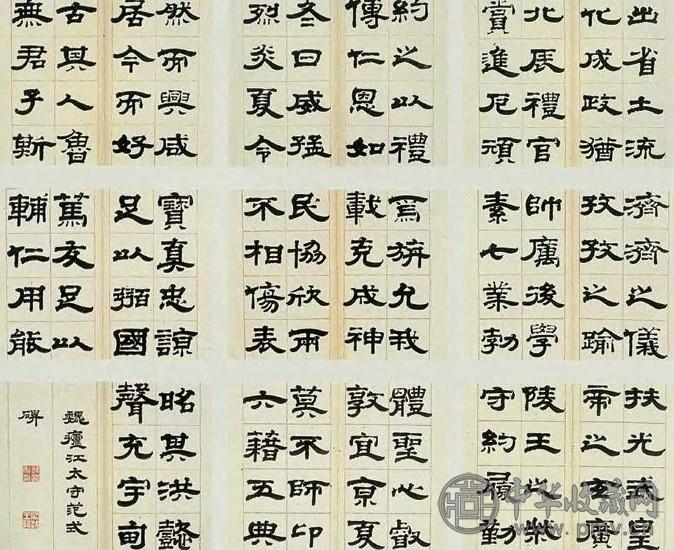 出省士流
化成政猶
北辰禮官
賞進厄頑
約之以禮
傳仁恩如
冬日威猛
烈炎夏令
然而興咸
居今而好
古其人魯
無君子斯
濟濟之儀
孜孜之踰
帥厲後學
素七業勃
焉旃允我
載克成神
民協欣兩
不相傷表
寶真忠諒
足以弼國
篤友足以
輔仁用能
扶光武皇
帝之玄廣
陵王之榮
守約履勤
體聖心叡
敦宜京夏
莫不師卬
六藉五典
昭其洪懿
聲充宇甸
魏廬江太守范式
碑
中华收藏网